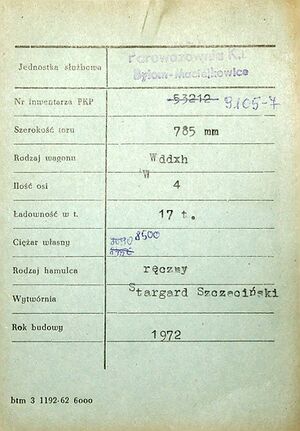 Jednostka służbowa Parowozownia K.D. Bytom-Maciejkowice
Nr inwentarza PKP 53212 9.105-7
Szerokość toru 785 mm
Rodzaj wagonu Wddxh
W
Ilość osi 4
Ładowność w t. 17 t.
Ciężar własny 8500
Rodzaj hamulca ręczny
Wytwórnia Stargard Szczeciński
Rok budowy 1972
btm 3 1192-62 6000